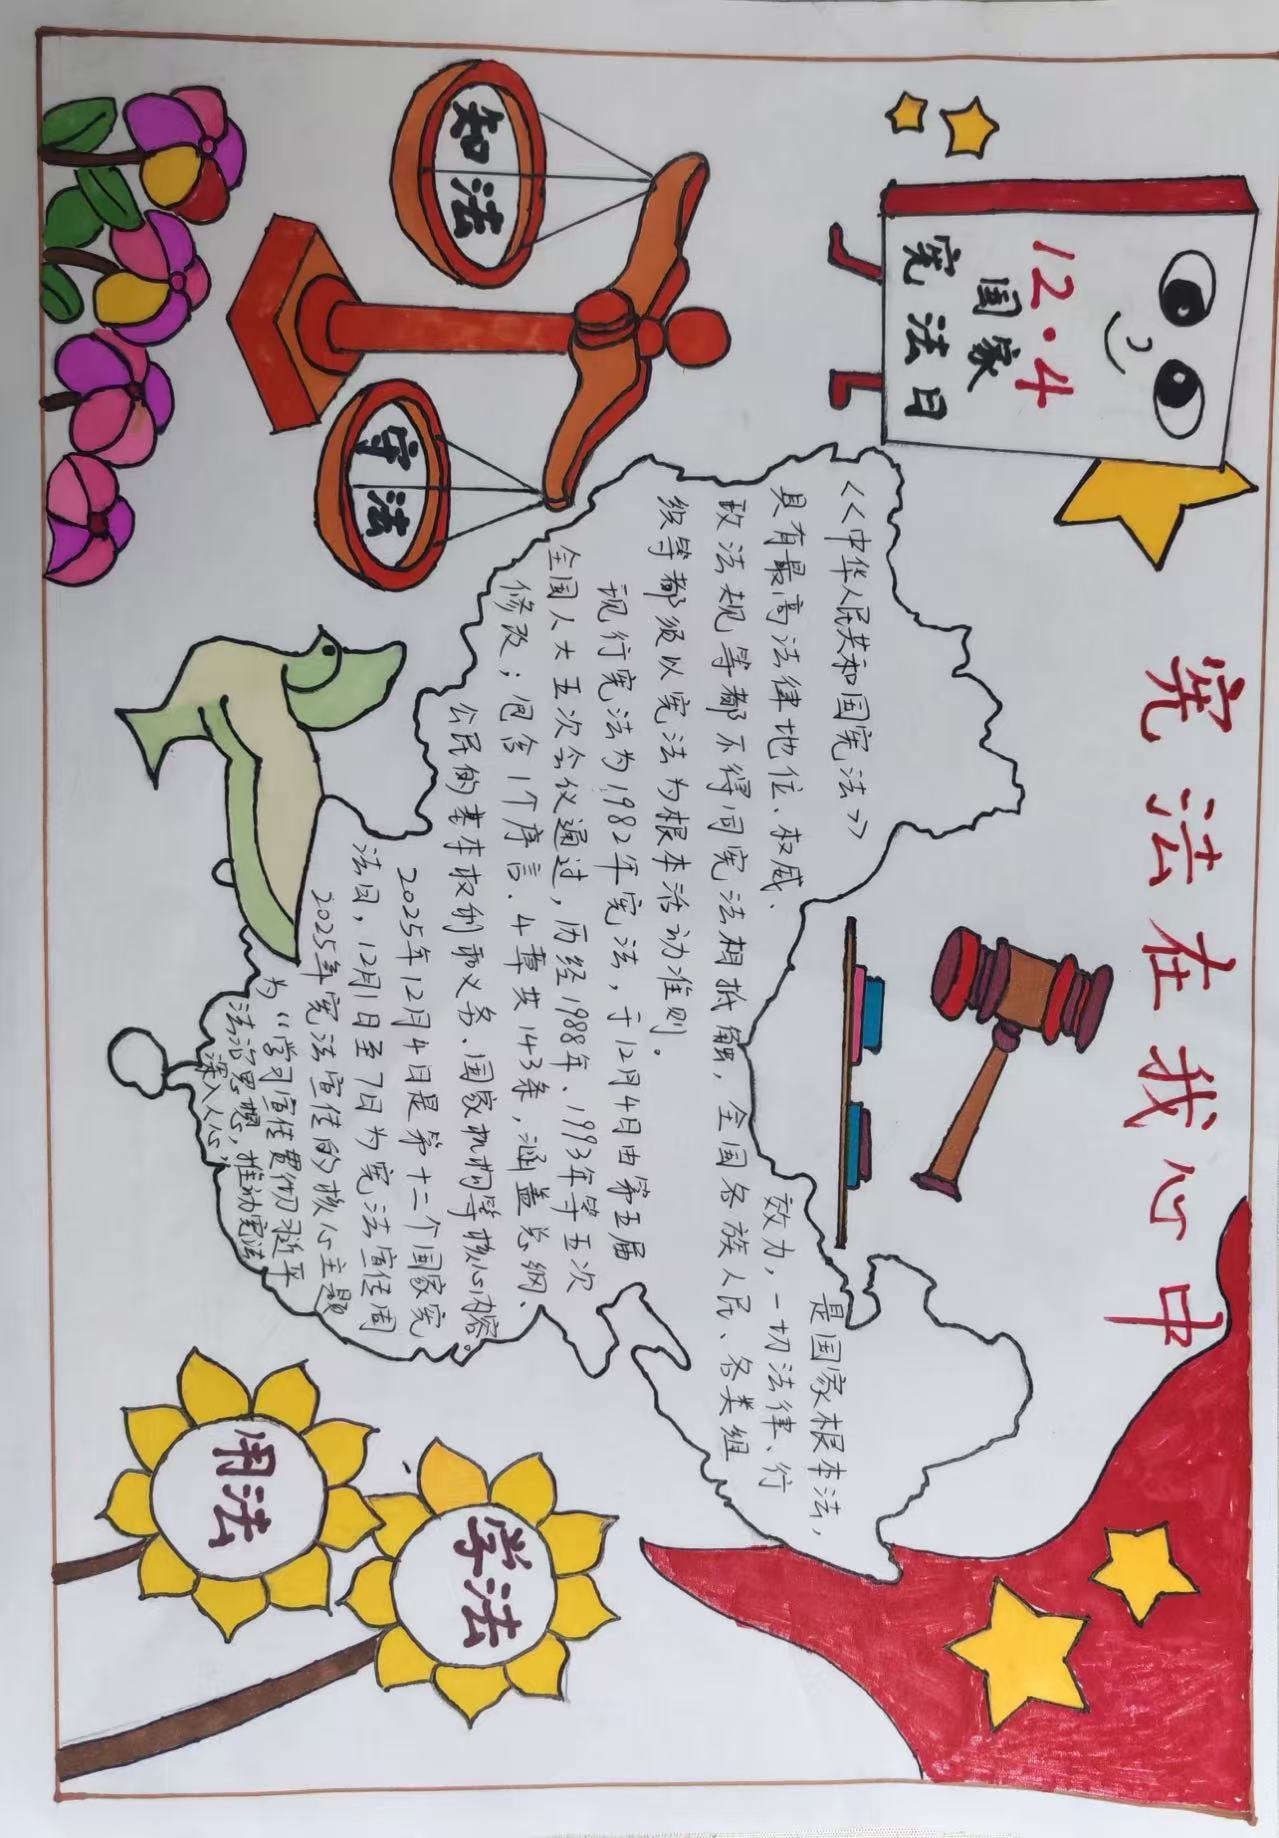 宪法在我心中
12·4
国家
宪法日
知法
守法
《中华人民共和国宪法》
是国家根本法,
具有最高法律地位、权威、
效力,一切法律、行
政法规等都不得同宪法相抵触,全国各族人民、各类组
织等都须以宪法为根本活动准则。
现行宪法为1982年宪法,于12月4日由第五届
全国人大五次会议通过,历经1988年、1993年等五次
修改;包含1个序言、4章共143条,涵盖总纲、
公民的基本权利和义务、国家机构等核心内容。
2025年12月4日是第十二个国家宪
法日,12月1日至7日为宪法宣传周
2025年宪法宣传的核心主题
为“学习宣传贯彻习近平
法治思想,推动宪法
深入人心”
学法
用法